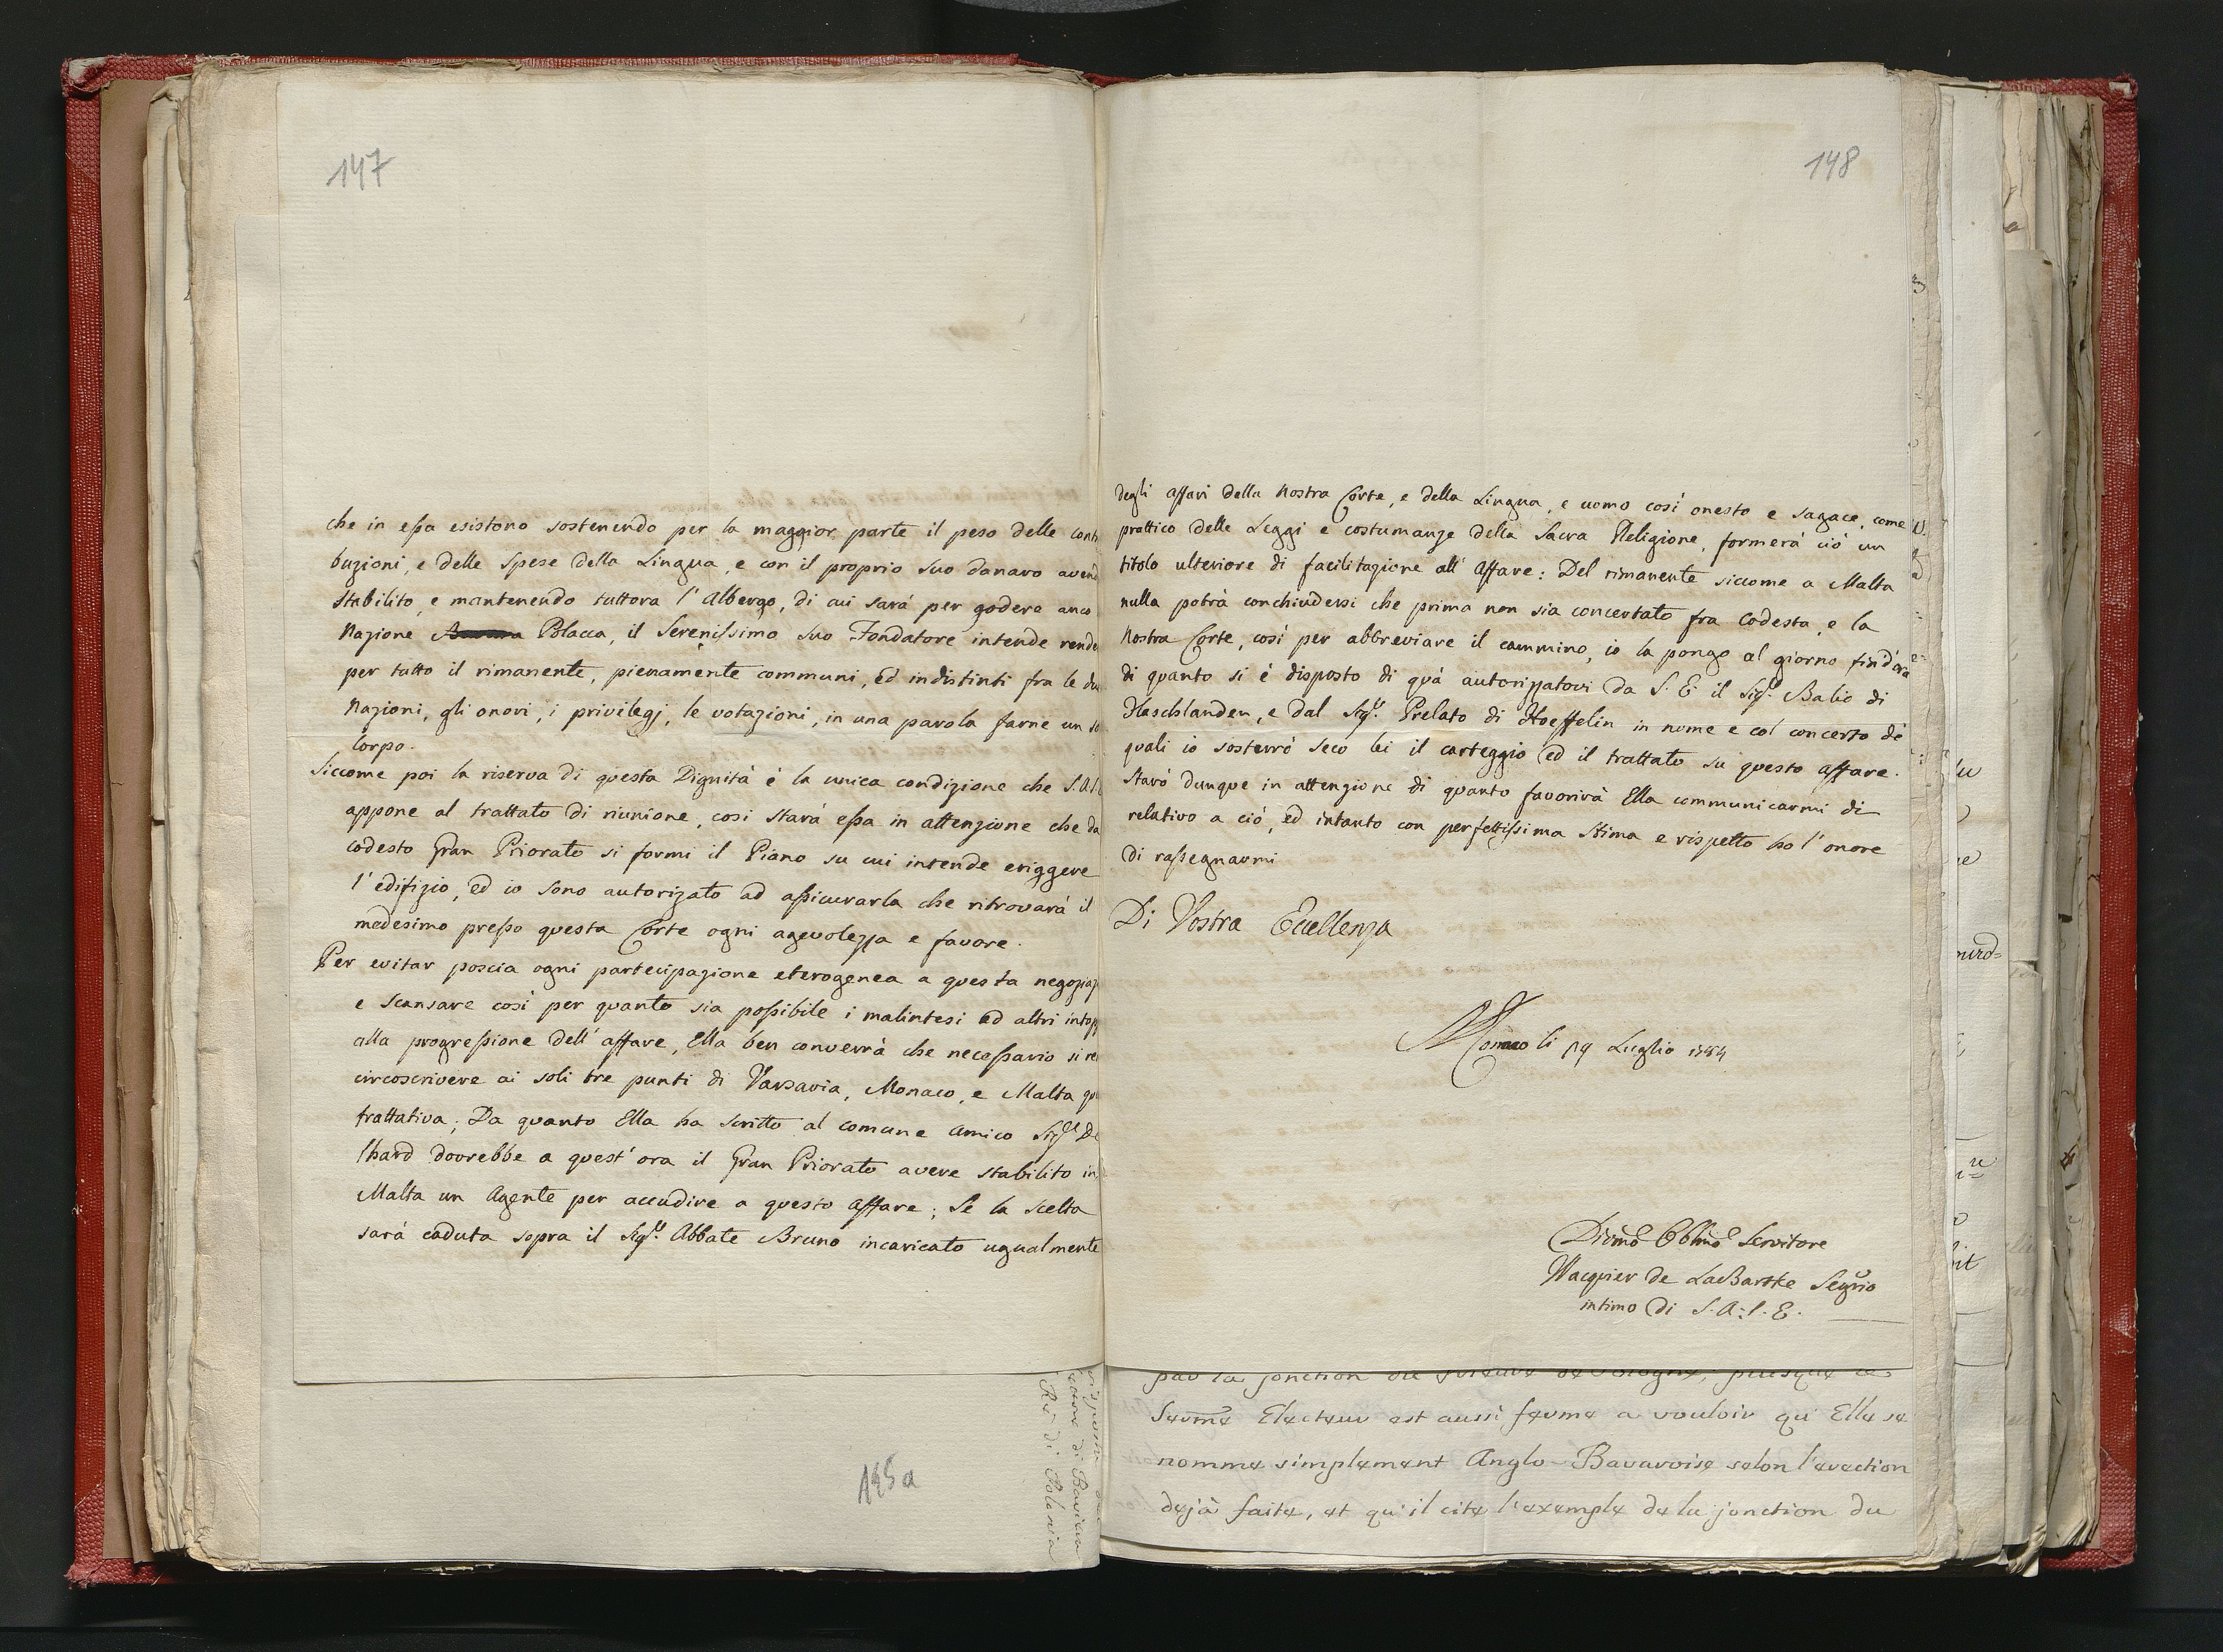 147
che in eſsa esistono sostenendo per la maggior parte il peso delle cont
buzioni, e delle Spese della Lingua, e con il proprio suo danaro avend
stabilito, e mantenendo tuttora l'Albergo, di cui sarà per godere anco
Nazione Polacca, il Sereniſsimo suo Fondatore intende rende
per tutto il rimanente, pienamente communi, ed indistinti fra le du
Nazioni, gli onori, i privilegj, le votazioni, in una parola farne un so
Corpo.
Siccome poi la riserva di questa Dignità è la unica condizione che S.A.S.
appone al trattato di riunione, cosi starà eſsa in attenzione che da
codesto Gran Priorato si formi il Piano su cui intende eriggere
l'edifizio, ed io sono autorizato ad aſsicurarla che ritrovarà il
medesimo preſso questa Corte ogni agevolezza e favore.
Per evitar poscia ogni partecipazione eterogenea a questa negoziaz
e scansare così per quanto sia poſsibile i malintesi ed altri intop
alla progreſsione dell'affare, Ella ben converrà che neceſsario si re
circoscrivere ai soli tre punti di Varsavia, Monaco, e Malta qu
trattativa; Da quanto Ella ha scritto al comune Amico Sigr. De
lhard dovrebbe a quest'ora il Gran Priorato avere stabilito in
Malta un Agente per accudire a questo affare; Se la scelta
sarà caduta sopra il Sigr. Abbate Bruno incaricato ugualmente
145a
Re di Polonia
148
degli affari della Nostra Corte, e della Lingua, e uomo così onesto e sagace, come
prattico delle Leggi e costumanze della Sacra Religione, formerà ciò un
titolo ulteriore di facilitazione all'affare: Del rimanente siccome a Malta
nulla potrà conchiudersi che prima non sia concertato fra Codesta, e la
Nostra Corte, così per abbreviare il cammino, io la pongo al giorno fin d'ora
di quanto si è disposto di quà autorizzatovi da S. E. il Sigr. Balio di
Flaschslanden, e dal Sigr. Prelato di Hoeffelin in nome e col concerto de'
quali io sosterrò seco lei il carteggio ed il trattato su questo affare.
Starò dunque in attenzione di quanto favorirà Ella communicarmi di
relativo a ciò, ed intanto con perfettiſsima stima e rispetto ho l'onore
di raſsegnarmi
Di Vostra Eccellenza
Monaco li 19 Luglio 1784
Divmo Obblmo Servitore
Wacquier de LaBarthe Segrio
intimo di S.A:S.E.
par la jonction du
Sérme Electeur est aussi ferme a vouloir qu'Elle se
nomme simplement Anglo-Bavaroise selon l'erection
dejà faite, et qu'il cite l'exemple de la jonction du